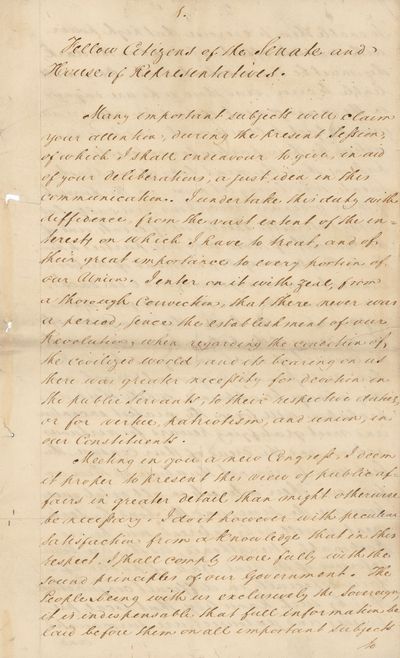 1.
Fellow Citizens of the Senate and
House of Representatives.
Many important subjects will claim
your attention, during the present Session,
of which I shall endeavour to give, in aid
of your deliberations, a just idea in this
communication. I undertake this duty with
diffidence, from the vast extent of the in-
terests on which I have to treat, and of
their great importance to every portion of
our Union. I enter on it with zeal, from
a thorough conviction, that there never was
a period, since the establishment of our
Revolution, when regarding the condition of
the civilized world, and its bearing on us
there was greater necessity for devotion in
the public servants, to their respective duties,
or for virtue, patriotism, and union, in
our Constituents.
Meeting in you a new Congress, I deem
it proper to present this view of public af-
fairs in greater detail than might otherwise
be necessary. I do it however with peculiar
satisfaction from a knowledge that in this
respect I shall comply more fully with the
sound principles of our Government. The
People being with us exclusively the Sovereign,
it is indispensable that full information be
laid before them on all important subjects
to